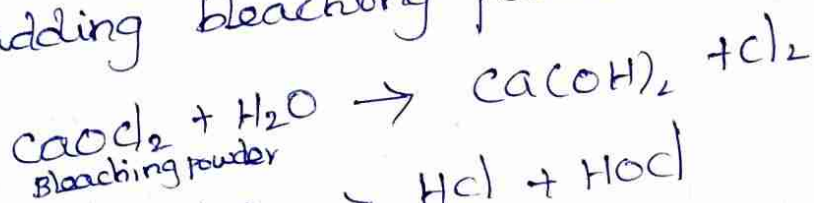 adding bleaching
CaOCl₂ + H₂O → Ca(OH)₂ + Cl₂
Bleaching powder
HCl + HOCl